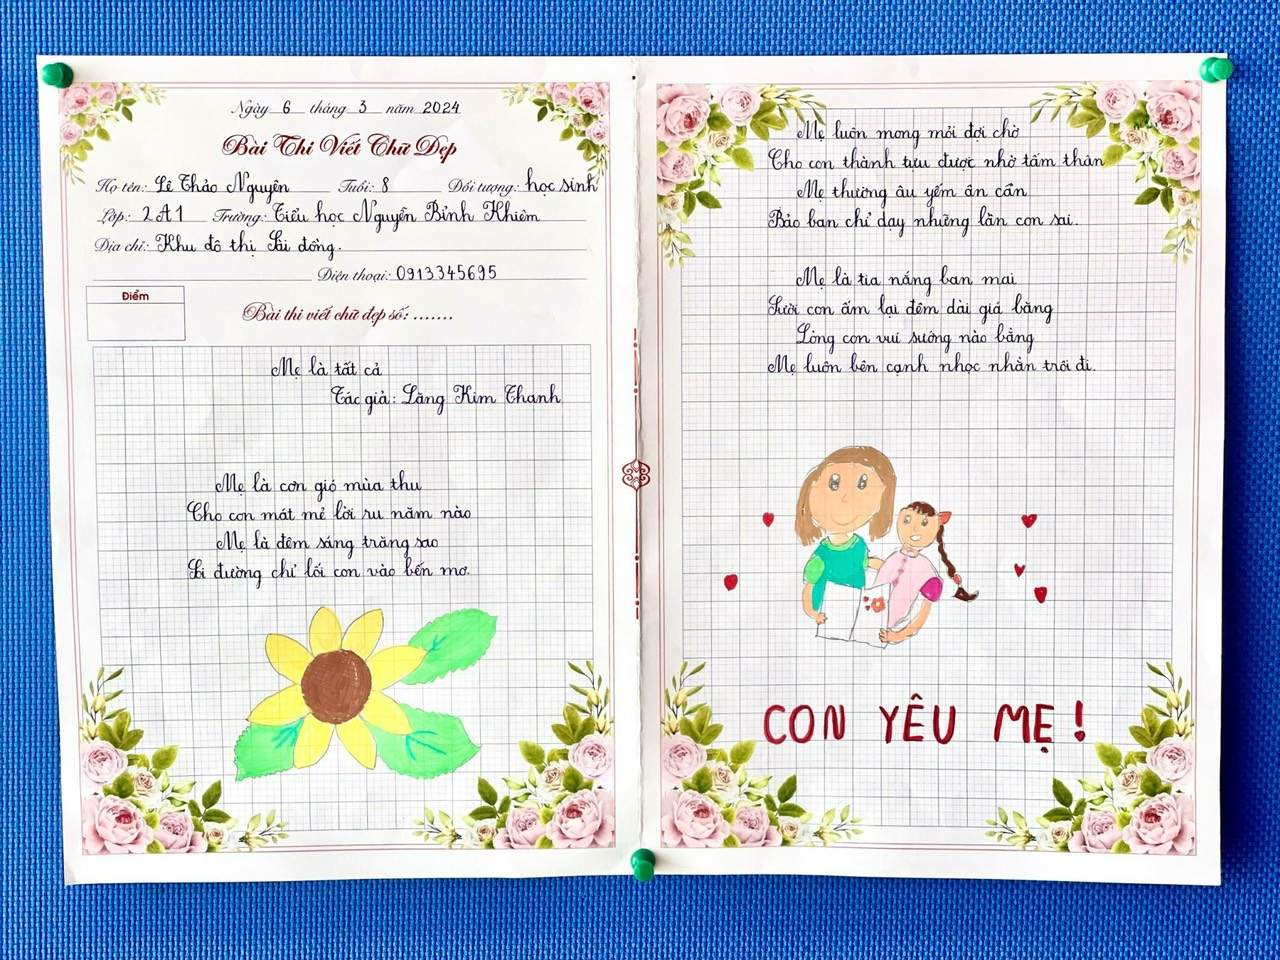 Ngày 6 tháng 3 năm 2024
Bài Thi Viết Chữ Đẹp
Họ tên: Lê Thảo Nguyên Tuổi: 8 Đối tượng: học sinh
Lớp: 2A1 Trường: Tiểu học Nguyễn Bỉnh Khiêm
Địa chỉ: Khu đô thị Sài đồng.
Điện thoại: 0913345695
Điểm
Bài thi viết chữ đẹp số: .......
Mẹ là tất cả
Tác giả: Lăng Kim Thanh
Mẹ là cơn gió mùa thu
Cho con mát mẻ lời ru năm nào
Mẹ là đêm sáng trăng sao
Soi đường chỉ lối con vào bến mơ.
Mẹ luôn mong mỏi đợi chờ
Cho con thành tựu được nhờ tấm thân
Mẹ thường âu yếm ân cần
Bảo ban chỉ dạy những lần con sai.
Mẹ là tia nắng ban mai
Sưởi con ấm lại đêm dài giá băng
Lòng con vui sướng nào bằng
Mẹ luôn bên cạnh nhọc nhằn trôi đi.
CON YÊU MẸ!